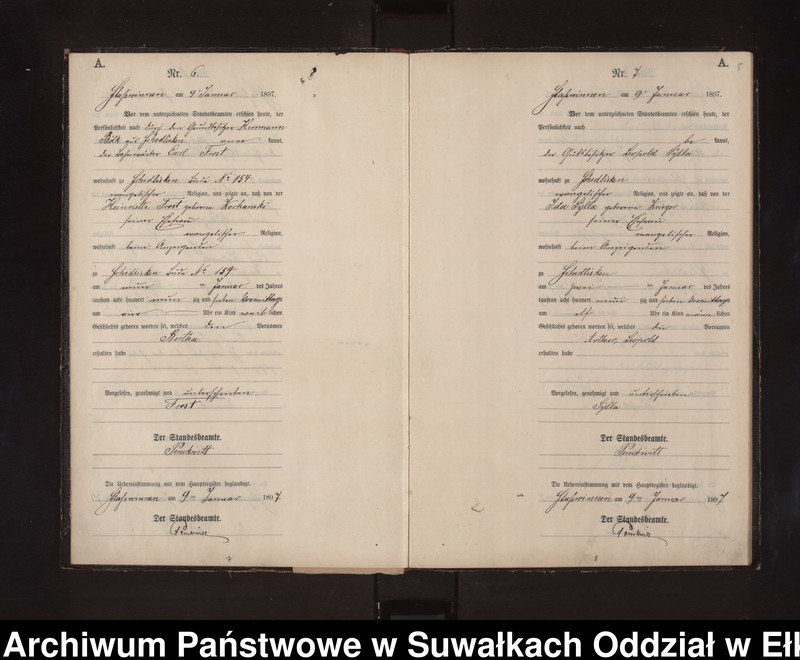 A.
Nr. 6.
8
am 9 Januar 1897.
Vor dem unterzeichneten Standesbeamten erschien heute, der
Persönlichkeit nach durch den Grundbesitzer Hermann
aus Schedlisken kannt,
der Bahnwärter Carl Frost
wohnhaft zu Schedlisken Bude No 154
evangelischer Religion, und zeigte an, daß von der
Henriette Frost geborene Kochanski
seiner Ehefrau
evangelischer Religion,
wohnhaft beim Anzeigenden
zu Schedlisken Bude No 154
am neun ten Januar des Jahres
tausend acht hundert neun zig und sieben Vormittags
um vier Uhr ein Kind weib lichen
Geschlechts geboren worden sei, welches den Vornamen
Bertha
erhalten habe
Vorgelesen, genehmigt und unterschrieben
Frost
Der Standesbeamte.
Die Uebereinstimmung mit dem Hauptregister beglaubigt.
am 9ten Januar 1897
Der Standesbeamte.
7
A.
5
Nr. 7.
am 9ten Januar 1897.
Vor dem unterzeichneten Standesbeamten erschien heute, der
Persönlichkeit nach
be kannt,
der Gutsbesitzer Leopold Sylla
wohnhaft zu Schedlisken
evangelischer Religion, und zeigte an, daß von der
Ida Sylla geborene Krüger
seiner Ehefrau
evangelischer Religion,
wohnhaft beim Anzeigenden
zu Schedlisken
am zwei ten Januar des Jahres
tausend acht hundert neun zig und sieben Vormittags
um elf Uhr ein Kind männ lichen
Geschlechts geboren worden sei, welches die Vornamen
Arthur, Leopold
erhalten habe
Vorgelesen, genehmigt und unterschrieben
Sylla
Der Standesbeamte.
Die Uebereinstimmung mit dem Hauptregister beglaubigt.
am 9ten Januar 1897
Der Standesbeamte.
8
Archiwum Państwowe w Suwałkach Oddział w Ełk